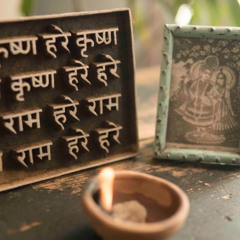 कृष्ण हरे कृष्ण
कृष्ण हरे हरे
राम हरे राम
राम हरे हरे